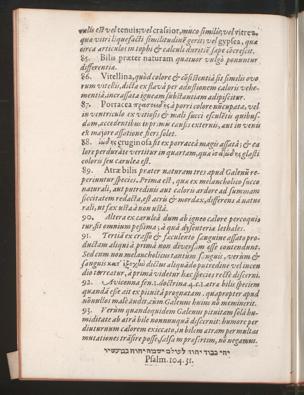 nullo est vel tenuis; vel crassior, muco similis; vel vitrea,
qua vitri liquefacti similitudinē gerit; vel gypsea, quæ
circa articulos in tophi & calculi duritiē sæpe cōcrescit.
85. Bilis præter naturam quatuor vulgò ponuntur
differentiæ.
86. Vitellina, quòd colore & cōsistentiâ sit similis ovo
rum vitellis, dicta ex flavâ per adustionem caloris vehe-
mentiâ, incrassata ignem substantiam adipiscitur.
87. Porracea à porri colore nūcupata, vel
in ventriculo ex vitiosis & mali succi esculētis quibus-
dam, accedentibus in primis causis externis, aut in venis
ex majore assatione fieri solet.
88. æruginosa fit ex porraceâ magis assatâ; & ca
lore perdurāte vertitur in quartam, quæ glasti
coloris seu cærulea est.
89. Atræ bilis præter naturam tres apud Galenū re-
periuntur species. Prima est, quæ ex melancholico succo
naturali, aut putredinis aut caloris ardore ad summam
siccitatem redacta, sit acris & mordax, differens à natu
rali, ut fæx usta à non ustâ.
90. Altera ex ceruleâ dum ab igneo calore percoquitur
sit omnium pessima; à quâ dysenteria lethales.
91. Tertiā ex crasso & fæculento sanguine assato pro-
ductam aliquā à primâ non diversam esse contendunt.
Sed cum non melancholicus tantùm sanguis, verùm &
sanguis dictus aliquādo putredine vel incen
dio torreatur, à primâ videtur hæc species rectè discerni.
92. Avicenna fen. 1. doctrina 4. c. 1. atræ bilis speciem
quandā esse ait ex pituitâ prognatam. quapropter apud
nōnullos malè audit, cùm Galenus huius nō meminerit.
93. Verùm quandoquidem Galenus pituitam solâ hu-
miditate ab atrâ bile nonnunquā discernit: humore per
diuturnum calorem exiccato, in bilem atram per multas
mutationes trāsire posse, falsâ in præsertim, nō negamus.
יהי כבוד יהוה לעולם ישמח יהוה במעשיו
Psalm. 104. 31.